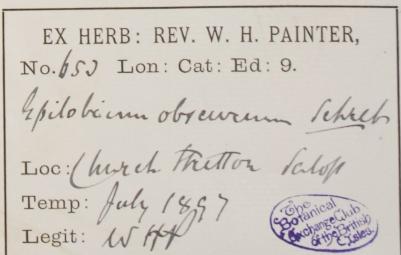 EX HERB: REV. W. H. PAINTER,
No. 653 Lon: Cat: Ed: 9.
Epilobium obscurum Schreb
Loc: Church Stretton Salop
Temp: July 1897
Legit: WHP
The
Botanical
Exchange Club
of the British
Isles.